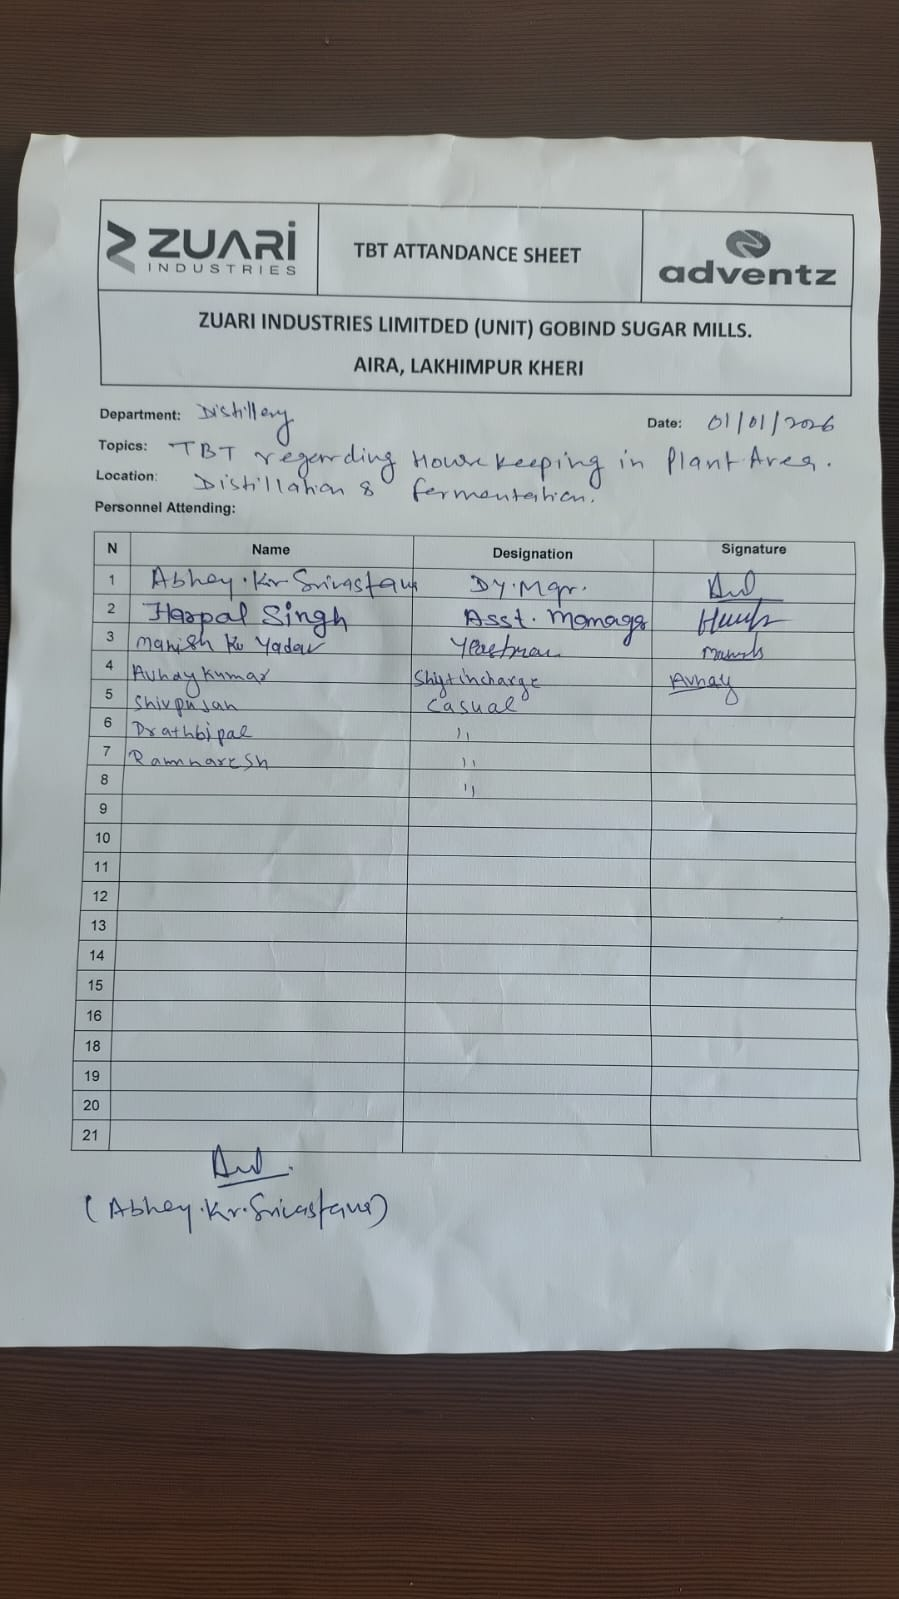 ZUARI
INDUSTRIES
TBT ATTANDANCE SHEET
adventz
ZUARI INDUSTRIES LIMITDED (UNIT) GOBIND SUGAR MILLS.
AIRA, LAKHIMPUR KHERI
Department: Distillery Date: 01/01/2026
Topics: TBT regarding House keeping in Plant Area.
Location: Distillation & fermentation.
Personnel Attending:
N Name Designation Signature
1 Abhey. Kr Srivastava Dy. Mgr.
2 Harpal Singh Asst. Manager
3 Manish Ku Yadav Yeastman Manish
4 Avhay Kumar Shift incharge Avhay
5 Shivpujan Casual
6 Drathbipal ,,
7 Ramnaresh ,,
8 ,,
9
10
11
12
13
14
15
16
18
19
20
21
(Abhey. Kr. Srivastava)